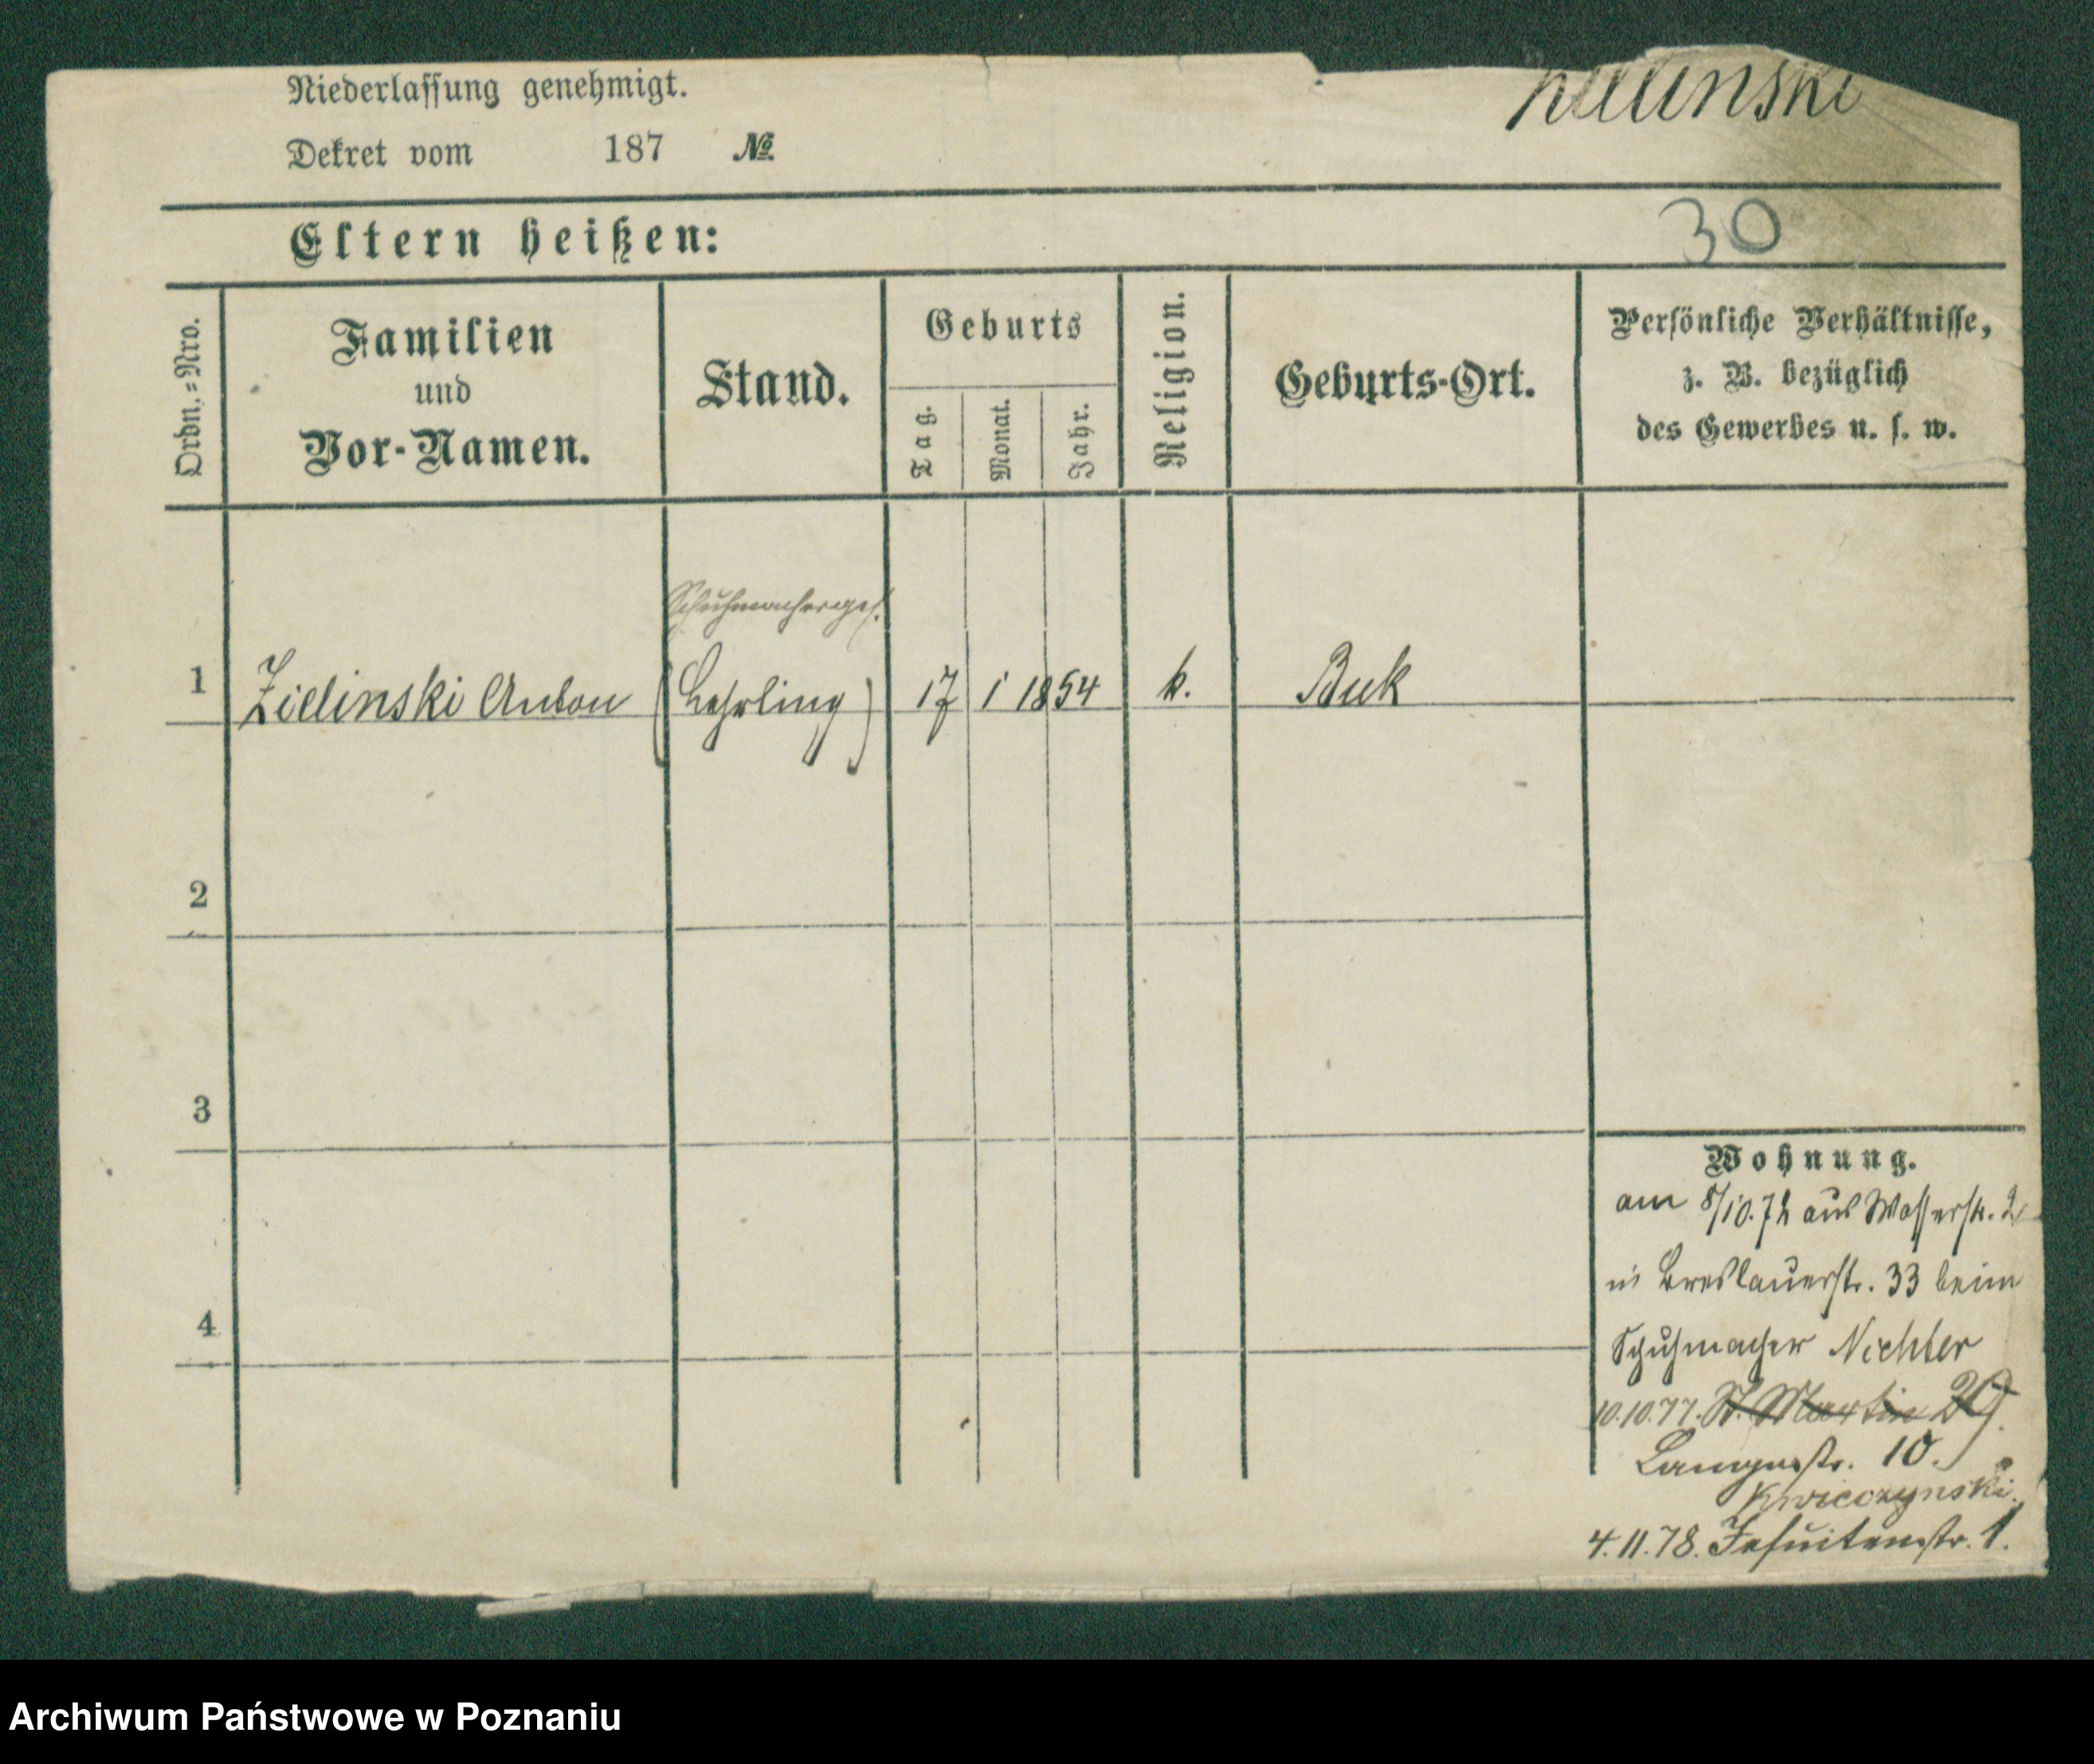 Niederlassung genehmigt.
Zielinski
Dekret vom 187 №
Eltern heißen:
30
Ordn.=Nro.
Familien
und
Vor-Namen.
Stand.
Geburts
Tag.
Monat.
Jahr.
Religion.
Geburts-Ort.
Persönliche Verhältnisse,
z. B. bezüglich
des Gewerbes u. s. w.
Schuhmacherges.
1 Zielinski Anton (Lehrling) 17 1 1854 k. Buk
2
3
4
Wohnung.
am 8/10.72 aus Wasserstr. 2
in Breslauerstr. 33 beim
Schuhmacher Nichter
10.10.77. St. Martin 29.
Langestr. 10.
Kwieczynski.
4.11.78. Jesuitenstr. 1.
Archiwum Państwowe w Poznaniu